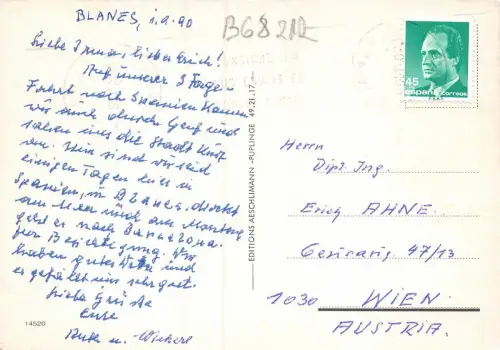 BLANES, 1.9.90
B68212
Liebe Irma, lieber Erich!
Auf unserer 3 Tage-
Fahrt nach Spanien kamen
wir auch durch Genf und
sahen uns die Stadt kurz
an. Nun sind wir seit
einigen Tagen hier in
Spanien, in Blanes, direkt
am Meer und am Montag
geht es nach Barcelona
zur Besichtigung. Wir
haben gutes Wetter und
es gefällt uns sehr gut.
Liebe Grüße
Eure
u. Wickerl
14520
EDITIONS AESCHLIMANN - PUPLINGE 49.21.17
45
españa correos
Herrn
Dipl. Ing.
Erich AHNE
47/13
1030 WIEN
AUSTRIA